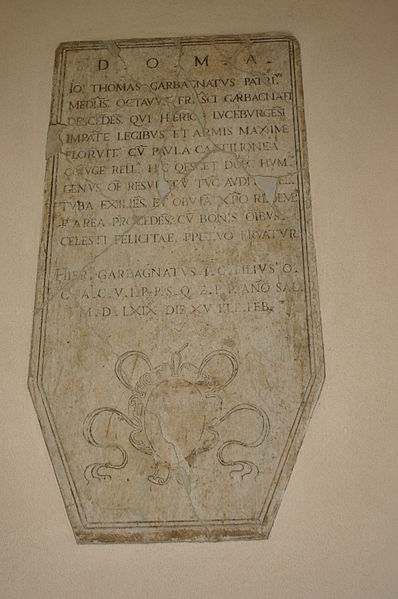 D. O. M. A.
IO. THOMAS GARBAGNATUS PATRI.
MEDLIS. OCTAVV. FRĀSCI GARBAGNATI
DESCEDĒS. QVI HĒRICO LVCEBVRGESI
IMPATE LEGIBVS ET ARMIS MAXIME
FLORVIT. CV̄ PAVLA CASTILIONEA
COIVGE HIC QESCET DOEC HVM
GENVS,
TVBA EXILIES. ET OBVIĀ XPO
AREA PROCEDES. CV̄ BONIS OIBVS
CELESTI FELICITAE. PPETVO FRVATVR
HIER. GARBAGNATVS I. C. FILIVS O.
C. A. C. V. I. P. P. S. Q. E. P. P. ANO SAL.
M. D. LXIX DIE XV FEB.